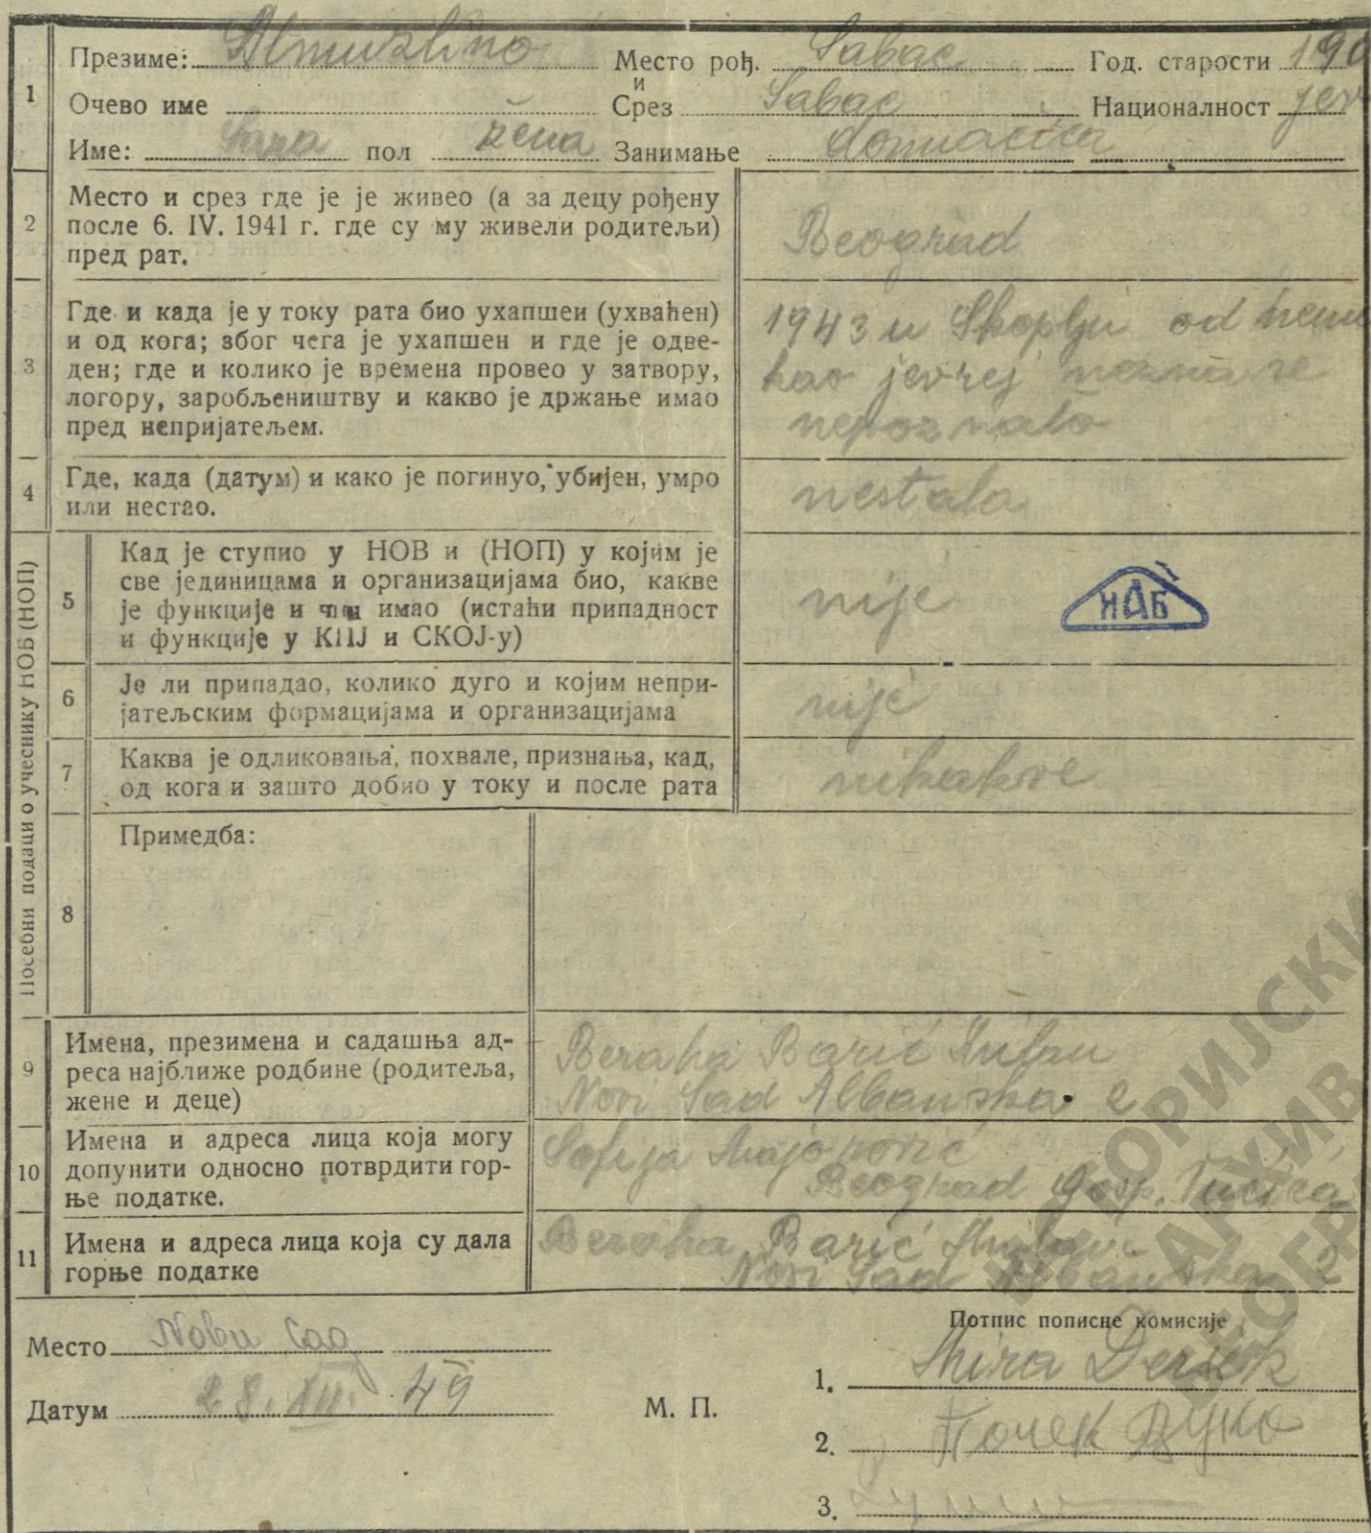 1 Презиме: Almuzlino Место рођ. Šabac Год. старости 190
Очево име и Срез Šabac Националност jev
Име: Sara пол žena Занимање domaćica
2 Место и срез где је је живео (а за децу рођену
после 6. IV. 1941 г. где су му живели родитељи)
пред рат.
Beograd
3 Где и када је у току рата био ухапшеи (ухваћен)
и од кога; због чега је ухапшен и где је одве-
ден; где и колико је времена провео у затвору,
логору, заробљеништву и какво је држање имао
пред непријатељем.
1943 u Skoplju od nem
kao jevrej
nepoznato
4 Где, када (датум) и како је погинуо, убијен, умро
или нестао.
nestala
Посебни подаци о учеснику НОБ (НОП)
5 Кад је ступио у НОВ и (НОП) у којим је
све јединицама и организацијама био, какве
је функције и чин имао (истаћи припадност
и функције у КПЈ и СКОЈ-у)
nije
ИАБ
6 Је ли припадао, колико дуго и којим непри-
јатељским формацијама и организацијама
nije
7 Каква је одликовања, похвале, признања, кад,
од кога и зашто добио у току и после рата
nikakve
8 Примедба:
9 Имена, презимена и садашња ад-
реса најближе родбине (родитеља,
жене и деце)
Beraha Barić Milan
Novi Sad Albanska 2
10 Имена и адреса лица која могу
допунити односно потврдити гор-
ње податке.
Sofija
Beograd Gosp. Vučića
11 Имена и адреса лица која су дала
горње податке
Beraha Barić Milan
Novi Sad Albanska 2
Место Нови Сад
Датум 28. XII. 49
М. П.
Потпис пописне комисије
1. Mira
2.
3.
ИСТОРИЈСКИ
АРХИВ
БЕОГРА